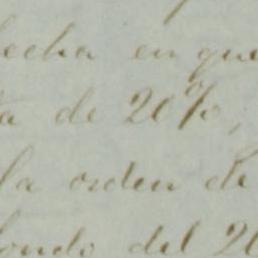 fecha en que
ta de 20%,
la orden de
fondo del 20